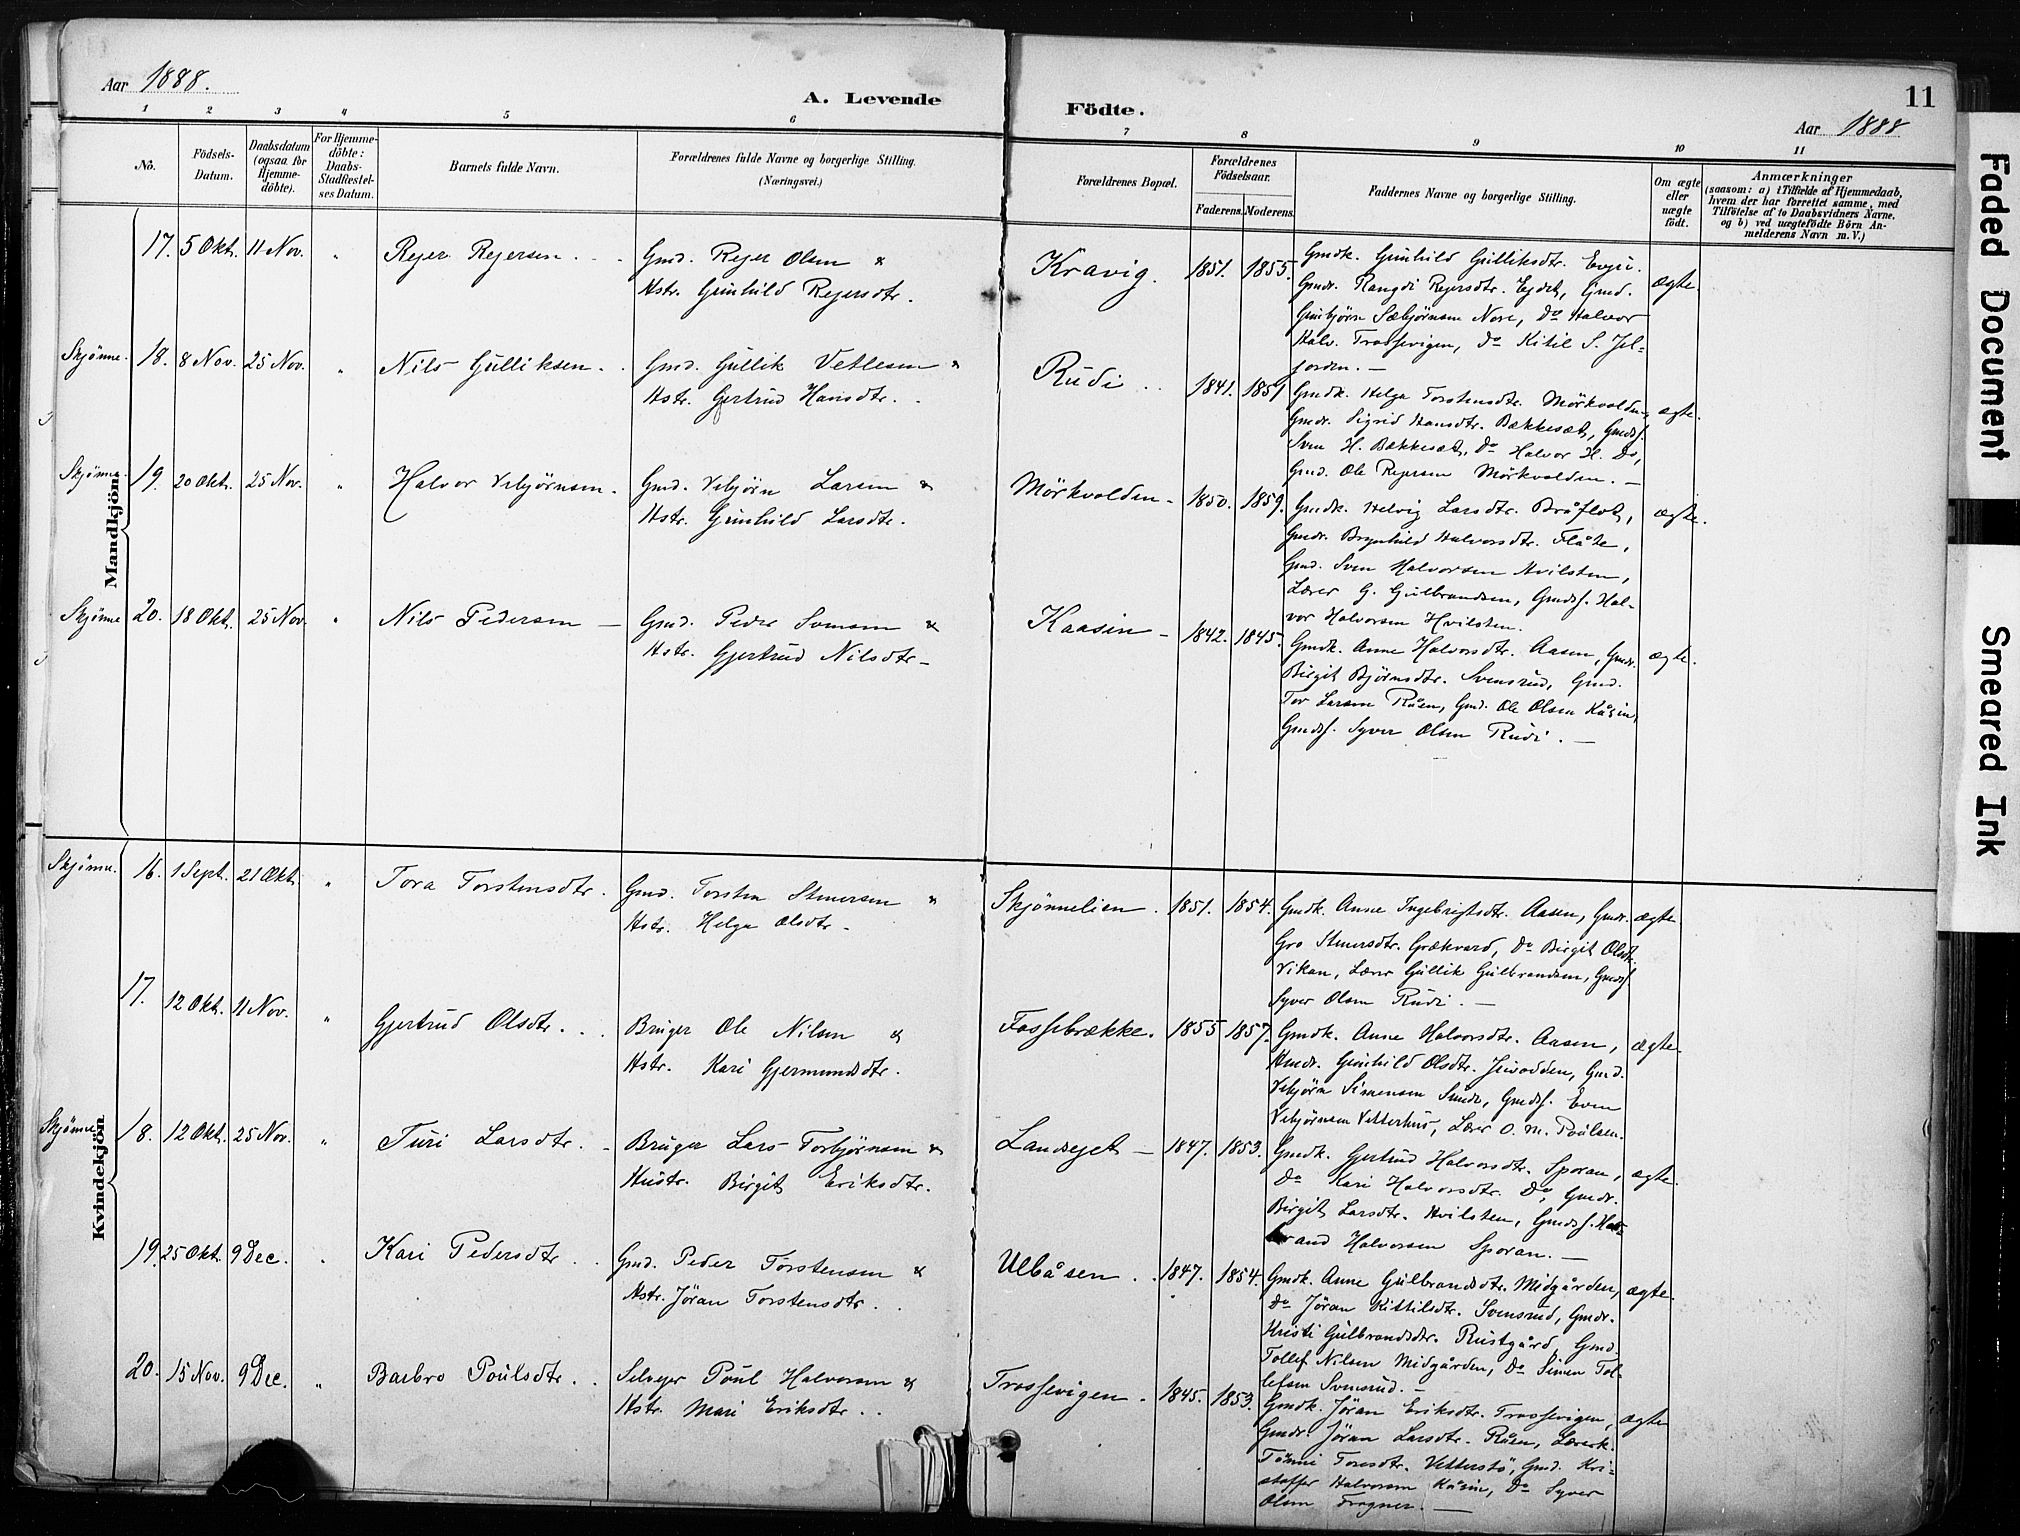 Aar 1888.
A. Levende
Födte.
11
Aar 1888
1 2 3 4 5 6 7 8 9 10 11
No.
Födsels-Datum.
Daabsdatum (ogsaa for Hjemme-döbte).
For Hjemme-döbte: Daabs-Stadfæstel-ses Datum.
Barnets fulde Navn.
Forældrenes fulde Navne og borgerlige Stilling.
(Næringsvei.)
Forældrenes Bopæl.
Forældrenes Födselsaar.
Faderens. Moderens.
Faddernes Navne og borgerlige Stilling.
Om ægte eller uægte födt.
Anmærkninger
(saasom: a) i Tilfælde af Hjemmedaab,
hvem der har forrettet samme, med
Tilföielse af to Daabsvidners Navne.
og b) ved uægtefödte Börn An-
melderens Navn m. V.)
Mandkjön.
17. 5 Okt. 11 Nov. " Rejer Rejersen. Gmd. Rejer Olsen &
Hstr. Gunhild Rejersdtr.
Kravig. 1851. 1855. Gmdk. Gunhild Gulliksdtr.
Gmdr. Rangdi Rejersdtr. Ejdet, Gmd.
Gunbjørn Sæbjørnsen Nore, Do Halvor
Halv. Trossevigen, Do Kitil S. Jel-
jorden. —
ægte.
Skjønne. 18. 8 Nov. 25 Nov. " Nils Gulliksen. Gmd. Gullik Vetlesen &
Hstr. Gjertrud Hansdtr.
Rudi 1841. 1851 Gmdk. Helga Torstensdtr. Mörkvolden,
Gmdr. Sigrid Hansdtr. Bækkesæt, Gmdsf.
Sven H. Bækkesæt, Do Halvor H. Do,
Gmd. Ole Rejersen Mörkvolden. —
ægte.
Skjønne. 19. 20 Okt. 25 Nov. " Halvor Vebjørnsen. Gmd. Vebjørn Larsen &
Hstr. Gunhild Larsdtr.
Mörkvolden - 1850. 1859. Gmdk. Helvig Larsdtr. Bråflot,
Gmdr. Brynhild Halvorsdtr. Flåte,
Gmd. Sven Halvorsen Hvilsten,
Lærer G. Gulbrandsen, Gmdsf. Hal-
vor Halvorsen Hvilsten.
ægte.
Skjønne 20. 18 Okt. 25 Nov. " Nils Pedersen — Gmd. Peder Svensen &
Hstr. Gjertrud Nilsdtr —
Kaasin - 1842. 1845. Gmdk. Anne Halvorsdtr. Aasen, Gmdr.
Birgit Bjørnsdtr. Svensrud, Gmd.
Tor Larsen Råsen, Gmd. Ole Olsen Kåsin,
Gmdsf. Syver Olsen Rudi. —
ægte.
Kvindekjön
Skjønne. 16. 1 Sept. 21 Okt. " Tora Torstensdtr. Gmd. Torsten Stenersen &
Hstr. Helga Olsdtr.
Skjönnelien. 1851. 1854. Gmdk. Anne Ingebrigtsdtr. Aasen, Gmdr.
Gro Stenersdtr. Grækvard, Do Birgit Olsdtr.
Vikan, Lærer Gullik Gulbrandsen, Gmdsf.
Syver Olsen Rudi. —
ægte
17. 12 Okt. 11 Nov. " Gjertrud Olsdtr. Bruger Ole Nilsen &
Hstr. Kari Gjermundsdtr.
Fossebrække. 1855 1857. Gmdk. Anne Halvorsdtr. Aasen,
Gunhild Olsdtr. Juvodden, Gmd.
Vebjørn Simensen Smidr, Gmdsf. Even
Vebjørnsen Vetterhus, Lærer O. M. Poulsen.
ægte.
Skjønne 18. 12 Okt. 25 Nov. " Turi Larsdtr. Bruger Lars Torbjørnsen &
Hustr. Birgit Eriksdtr.
Landsejet — 1847. 1853. Gmdk. Gjertrud Halvorsdtr. Sporan,
Do Kari Halvorsdtr. Do, Gmdr.
Birgit Larsdtr. Hvilsten, Gmdsf.
Halvorsen Sporan. —
ægte.
19. 25 Okt. 9 Dec. " Kari Pedersdtr. Gmd. Peder Torstensen &
Hstr. Jöran Torstensdtr.
Ulbåsen. 1847. 1854. Gmdk. Anne Gulbrandsdtr. Midgården,
Do Jöran Kittilsdtr. Svensrud, Gmdr.
Kristi Gulbrandsdtr. Rustgård, Gmd.
Tollef Nilsen Midgården, Do Simen Tol-
lefsen Svensrud. —
ægte.
20. 15 Nov. 9 Dec. " Barbro Poulsdtr. Selvejer Poul Halvorsen &
Hstr. Mari Eriksdtr.
Trossevigen. 1845. 1853. Gmdk. Jöran Eriksdtr. Trossevigen,
Gmdr. Jöran Larsdtr. Råsen, Lærerk.
Tönni Toresdtr. Vetterstö, Gmd. Kri-
stoffer Halvorsen Kåsin, Do Syver
Olsen Fragner. —
ægte
Faded Document
Smeared Ink